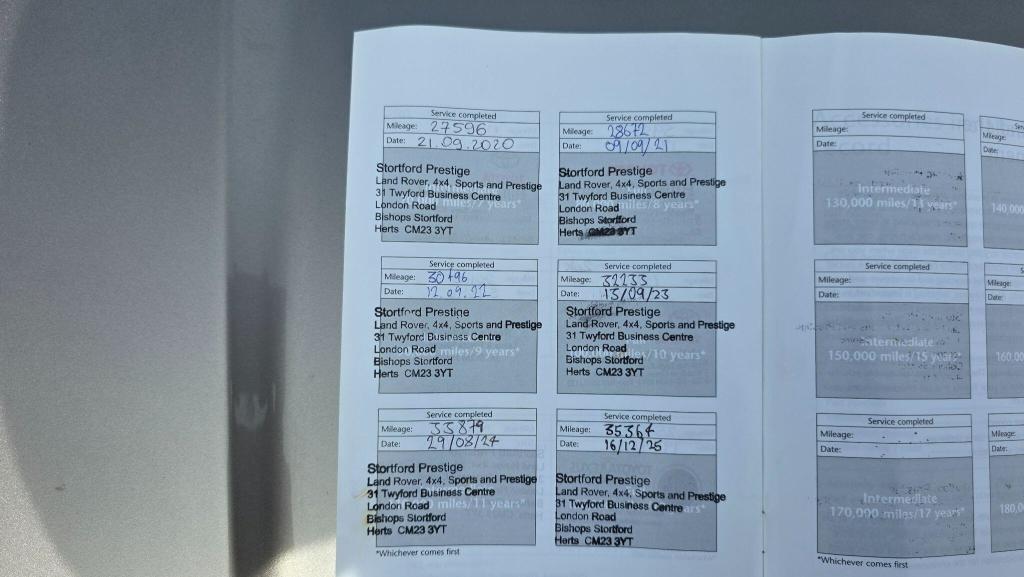 Service completed
Mileage: 27596
Date: 21.09.2020
Stortford Prestige
Land Rover, 4x4, Sports and Prestige
31 Twyford Business Centre
London Road
miles/7 years*
Bishops Stortford
Herts CM23 3YT
Service completed
Mileage: 28672
Date: 09/09/21
Stortford Prestige
Land Rover, 4x4, Sports and Prestige
31 Twyford Business Centre
London Road
miles/8 years*
Bishops Stortford
Herts CM23 3YT
Service completed
Mileage: 30496
Date: 12.09.22
Stortford Prestige
Land Rover, 4x4, Sports and Prestige
31 Twyford Business Centre
London Road
miles/9 years*
Bishops Stortford
Herts CM23 3YT
Service completed
Mileage: 32233
Date: 13/09/23
Stortford Prestige
Land Rover, 4x4, Sports and Prestige
31 Twyford Business Centre
London Road
/10 years*
Bishops Stortford
Herts CM23 3YT
Service completed
Mileage: 33879
Date: 29/08/24
Stortford Prestige
Land Rover, 4x4, Sports and Prestige
31 Twyford Business Centre
London Road
miles/11 years*
Bishops Stortford
Herts CM23 3YT
Service completed
Mileage: 35364
Date: 16/12/25
Stortford Prestige
Land Rover, 4x4, Sports and Prestige
31 Twyford Business Centre
London Road
Bishops Stortford
Herts CM23 3YT
*Whichever comes first
Service completed
Mileage:
Date:
Intermediate
130,000 miles/13 years*
Mileage:
Date:
140,000
Service completed
Mileage:
Date:
Intermediate
150,000 miles/15 years*
Mileage:
Date:
160,00
Service completed
Mileage:
Date:
Intermediate
170,000 miles/17 years*
Mileage:
Date:
180,0
*Whichever comes first